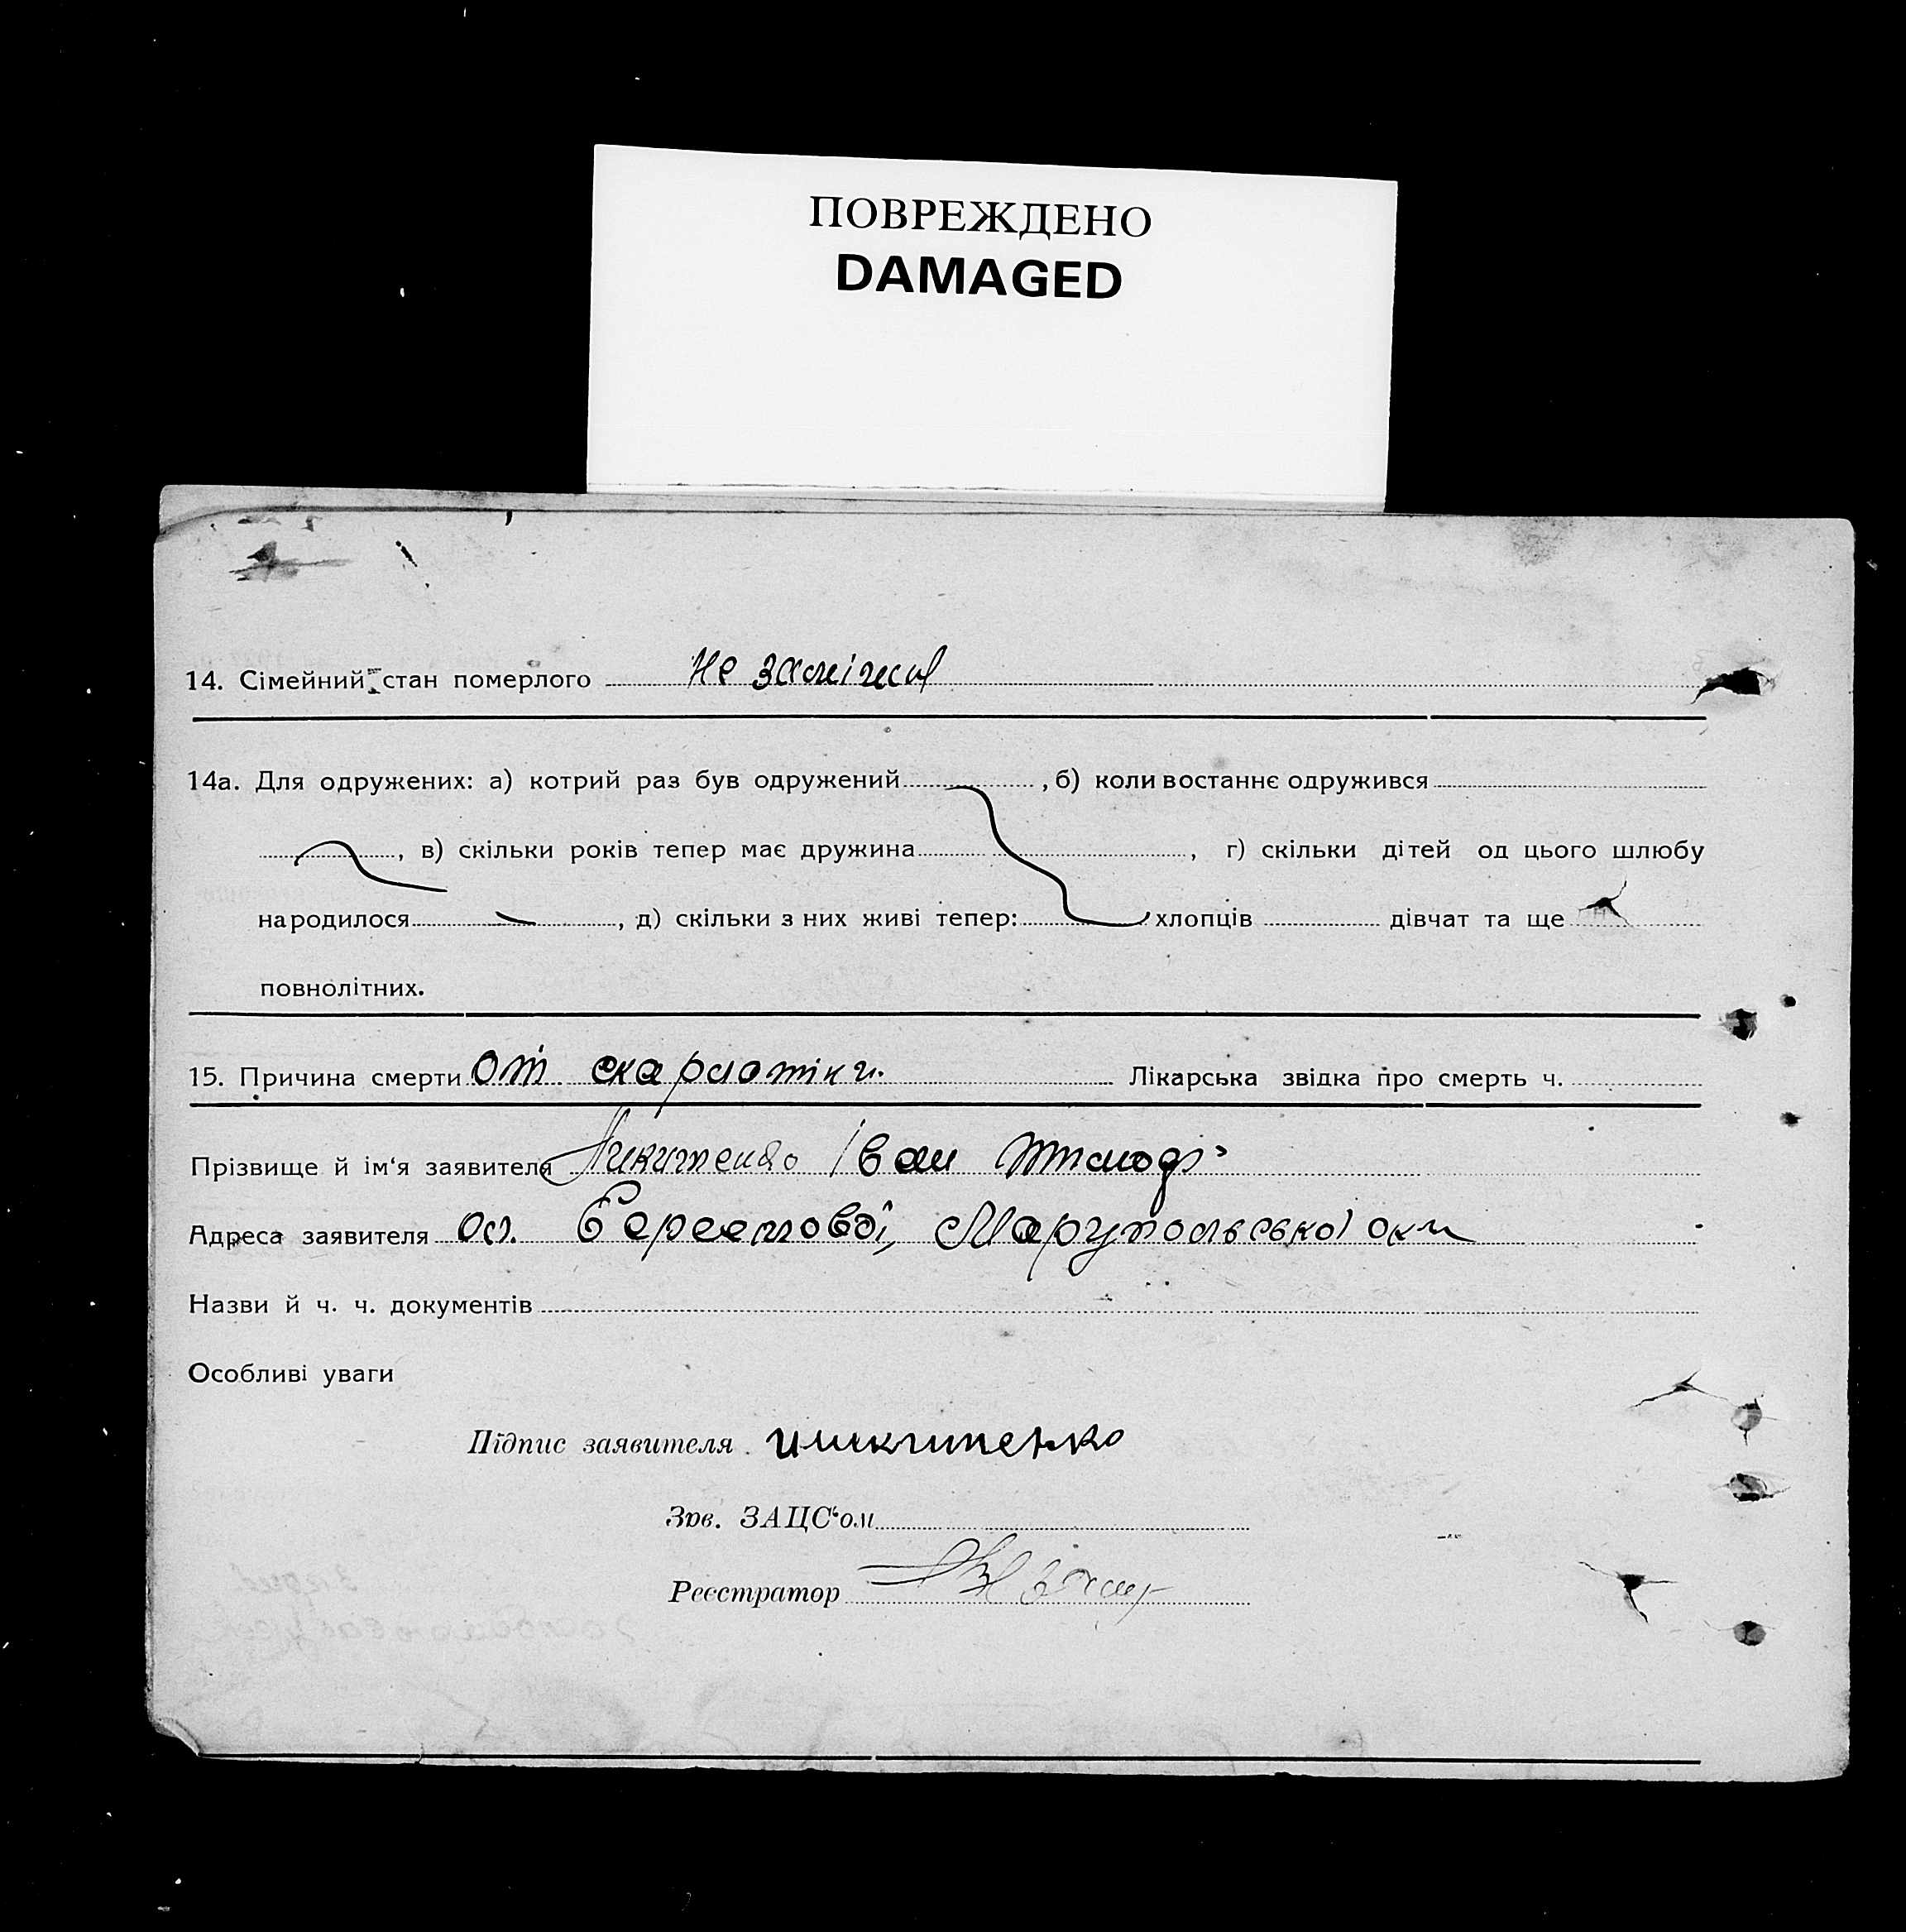 ПОВРЕЖДЕНО
DAMAGED
14. Сімейний стан померлого не заміжня
14а. Для одружених: а) котрий раз був одружений , б) коли востаннє одружився
, в) скільки років тепер має дружина , г) скільки дітей од цього шлюбу
народилося — , д) скільки з них живі тепер: хлопців дівчат та ще
повнолітних.
15. Причина смерти от скарлотіни. Лікарська звідка про смерть ч.
Прізвище й ім'я заявителя Никитенко Іван
Адреса заявителя ос. Марупольської окр
Назви й ч. ч. документів
Особливі уваги
Підпис заявителя
Зав. ЗАЦС'ом
Реєстратор